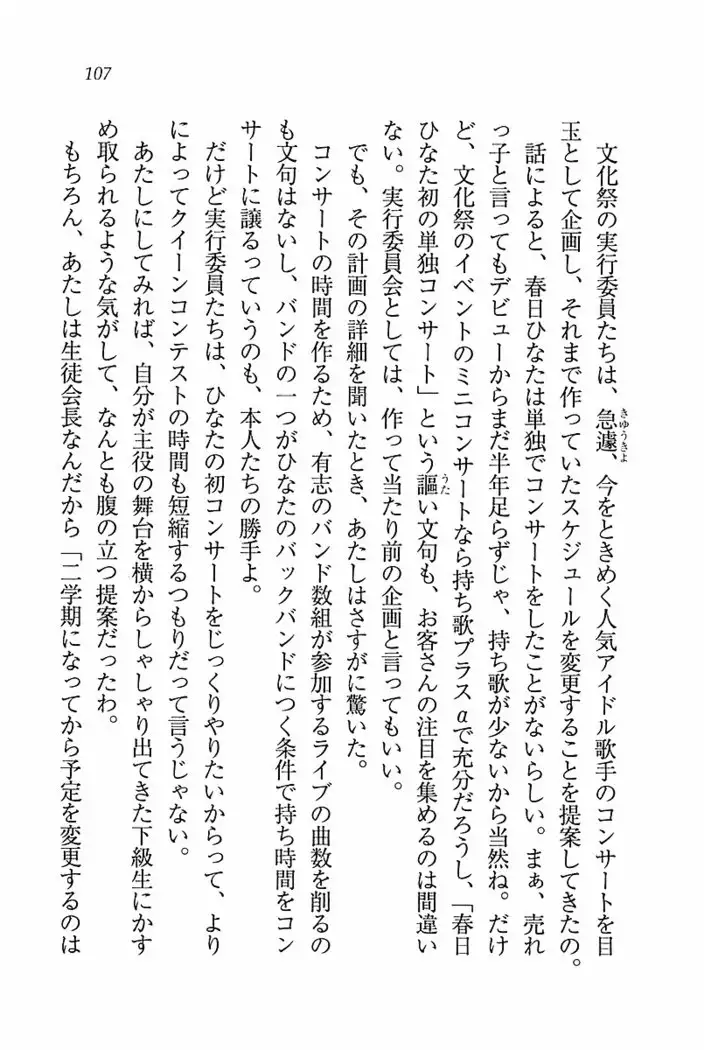 107
文化祭の実行委員たちは、急遽、今をときめく人気アイドル歌手のコンサートを目
玉として企画し、それまで作っていたスケジュールを変更することを提案してきたの。
話によると、春日ひなたは単独でコンサートをしたことがないらしい。まぁ、売れ
っ子と言ってもデビューからまだ半年足らずじゃ、持ち歌が少ないから当然ね。だけ
ど、文化祭のイベントのミニコンサートなら持ち歌プラスαで充分だろうし、「春日
ひなた初の単独コンサート」という謳い文句も、お客さんの注目を集めるのは間違い
ない。実行委員会としては、作って当たり前の企画と言ってもいい。
でも、その計画の詳細を聞いたとき、あたしはさすがに驚いた。
コンサートの時間を作るため、有志のバンド数組が参加するライブの曲数を削るの
も文句はないし、バンドの一つがひなたのバックバンドにつく条件で持ち時間をコン
サートに譲るっていうのも、本人たちの勝手よ。
だけど実行委員たちは、ひなたの初コンサートをじっくりやりたいからって、より
によってクイーンコンテストの時間も短縮するつもりだって言うじゃない。
あたしにしてみれば、自分が主役の舞台を横からしゃしゃり出てきた下級生にかす
め取られるような気がして、なんとも腹の立つ提案だったわ。
もちろん、あたしは生徒会長なんだから「二学期になってから予定を変更するのは